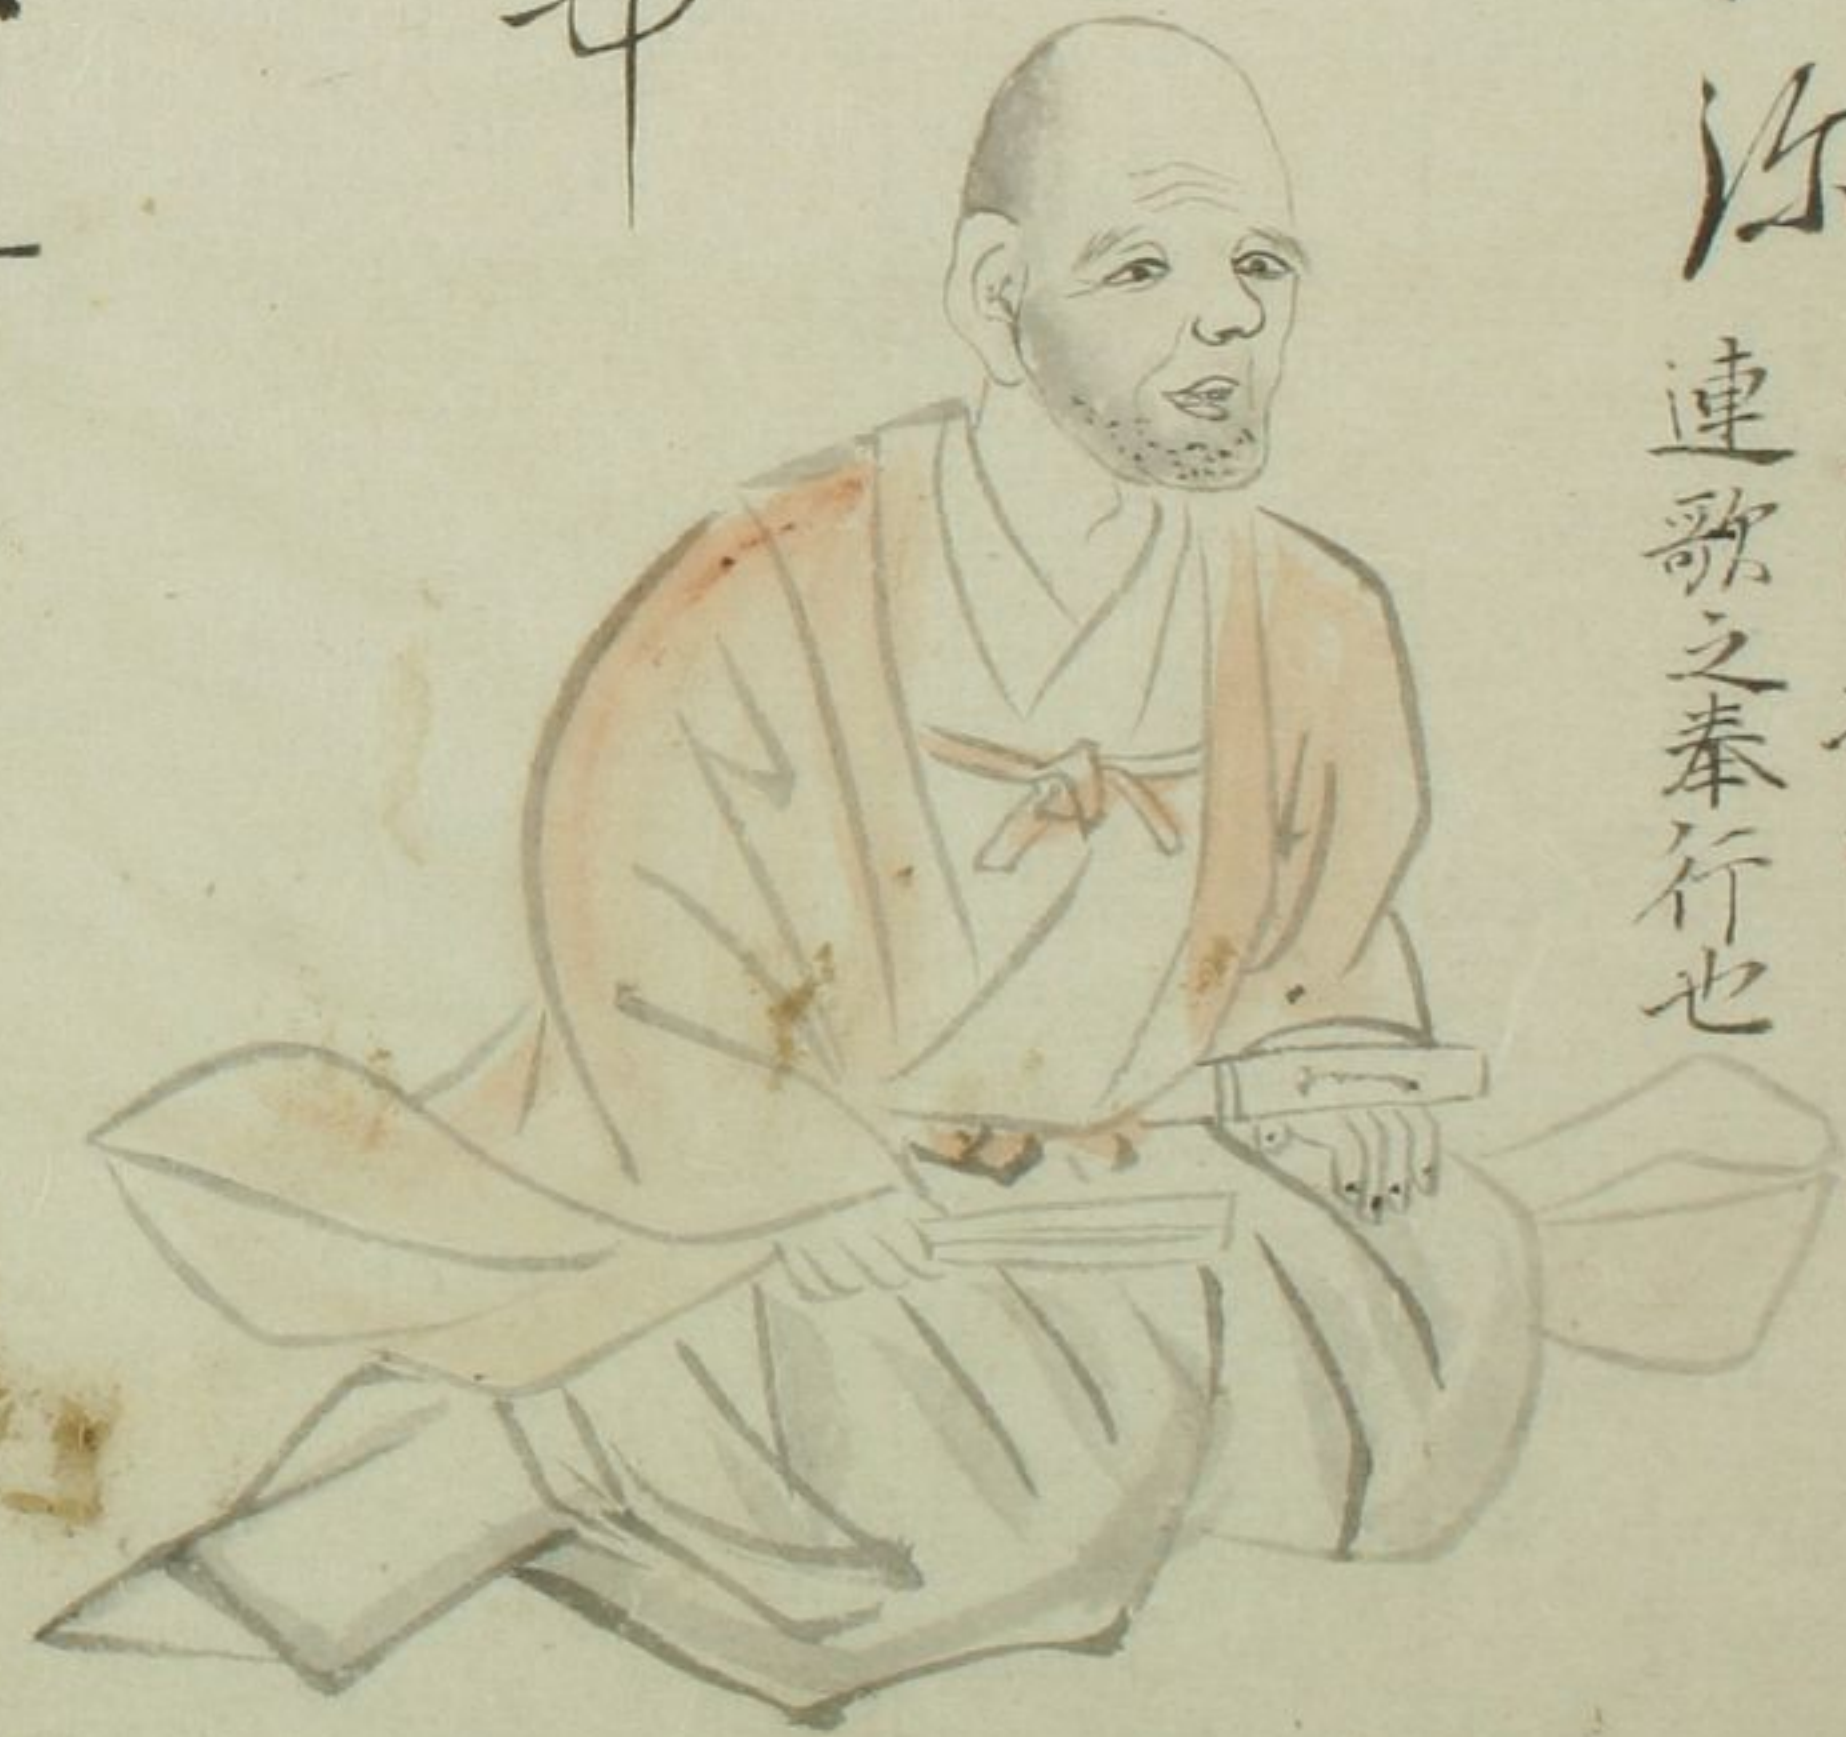 弥
連歌之奉行也